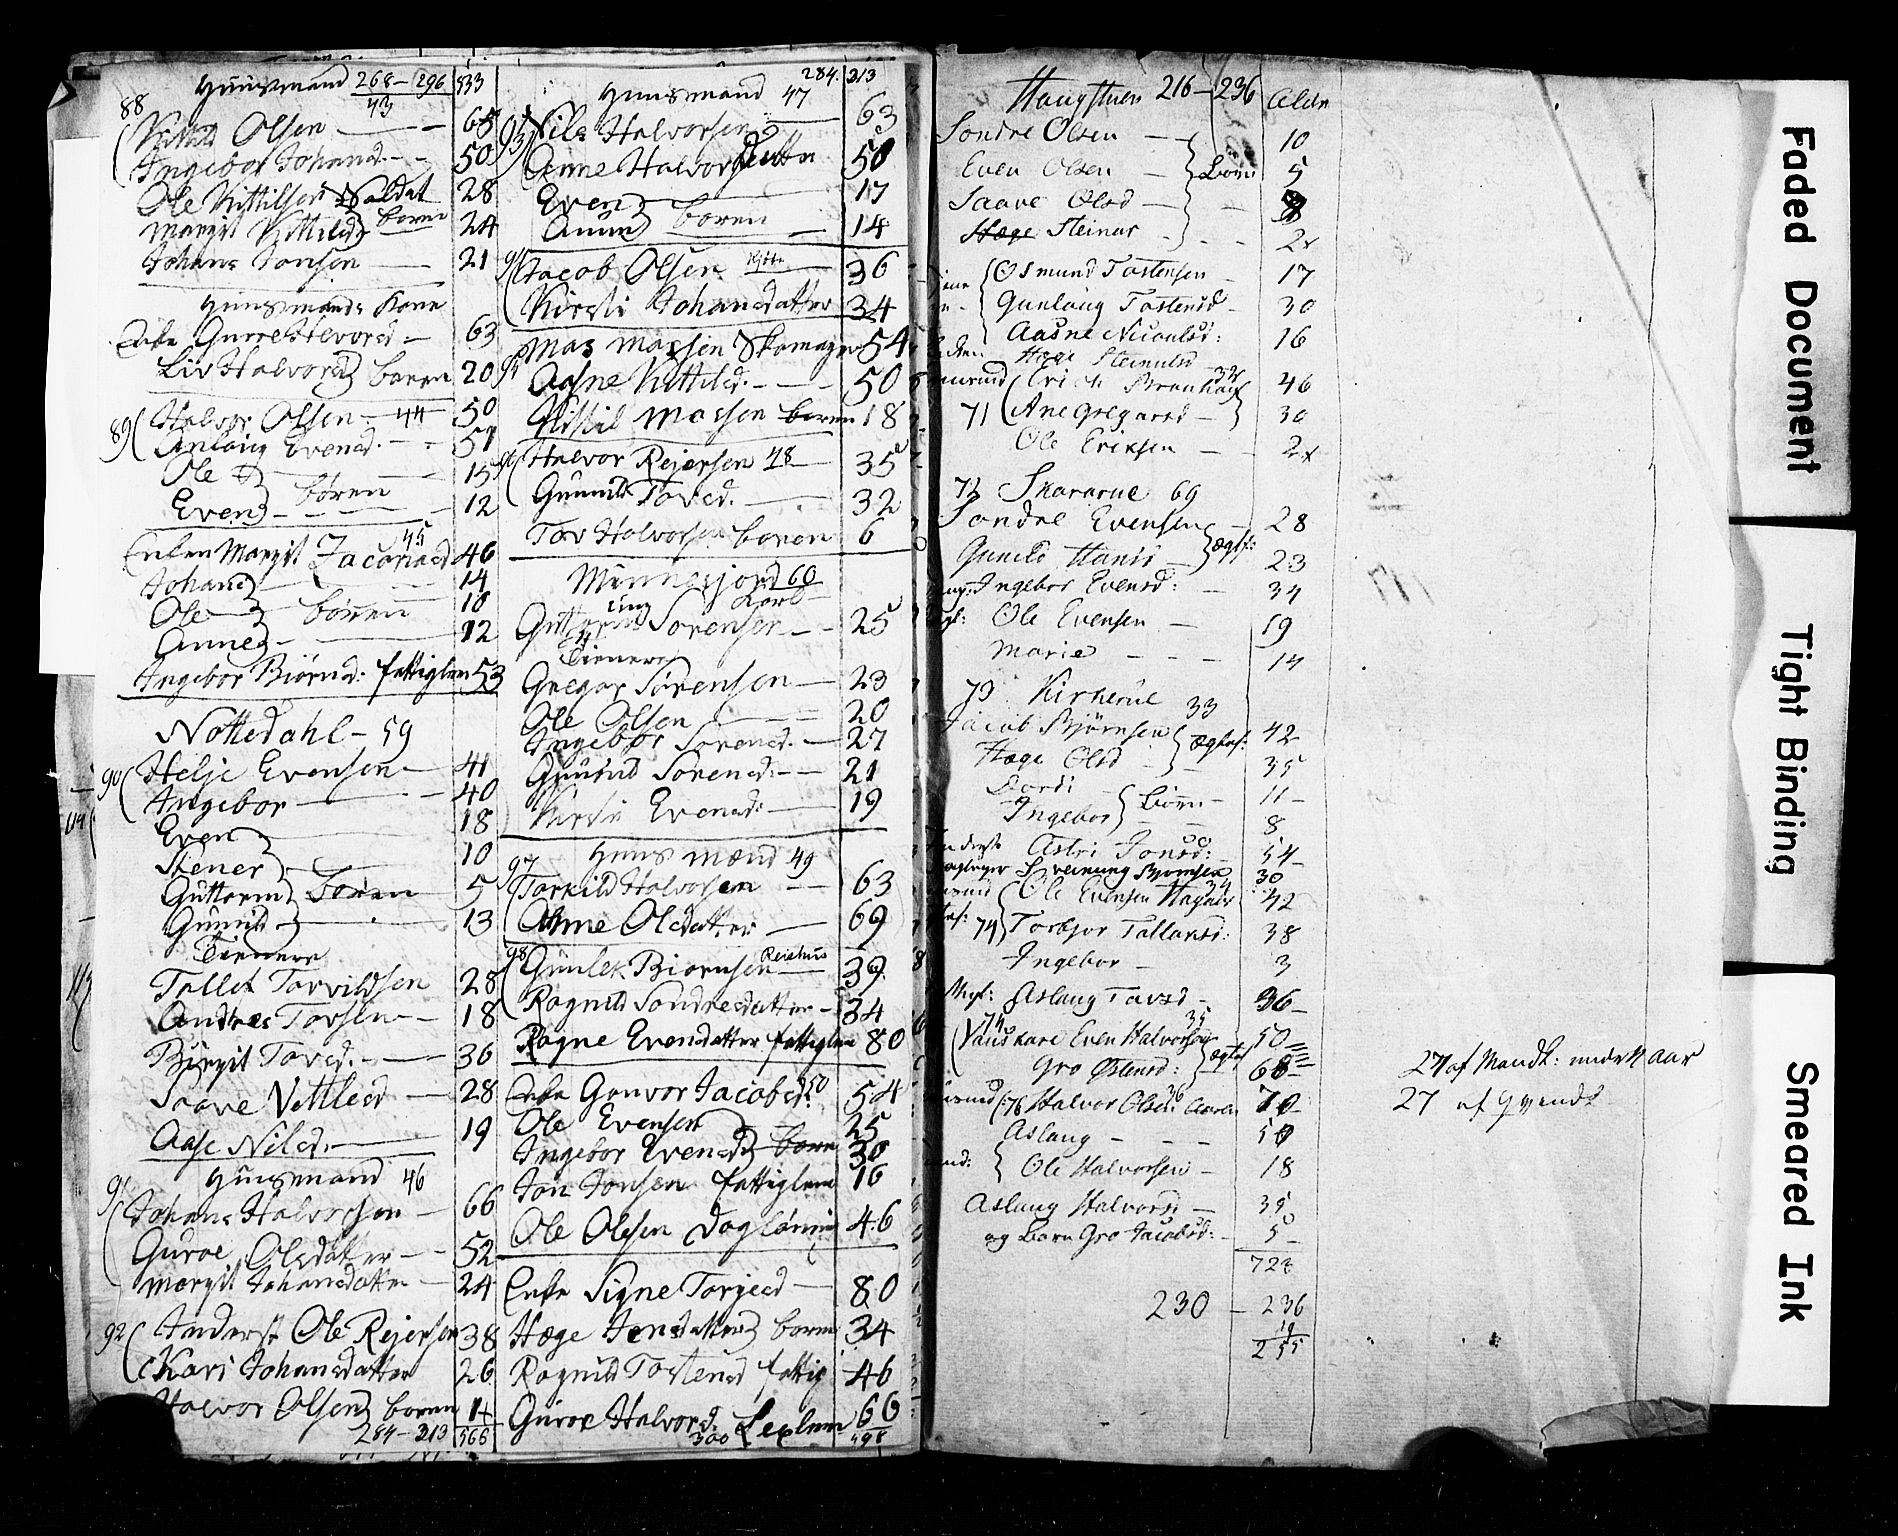 Huusmand 268-296 533
43
88
Kittil Olsen 65
Ingebor Johansd. 50
Ole Kittilsen Soldat 28
Margit Kittilsd boren 24
Johans Jonsen 21
Huusmands Kone
Enke Guroe Halvorsd 63
Liv Halvorsd boren 20
89 Halvor Olsen 44 50
Anlaug Evensd. 57
Ole 15
Even børen 12
45
Enken Margit Jacobsd 46
Johans 14
Ole børen 10
Anne 12
Ingebor Biørnsd: fattiglem 53
Nottedahl - 59
90 Helje Evensen 41
Ingebor 40
Even 18
Stener 10
Guttorm børen 5
Gunild 13
Tienere
Tallef Torvildsen 28
Andres Torsen 18
Birgit Tovsd. 36
Saave Vettlesd 28
Aase Nilsd. 19
Huusmand 46
91 Johans Halvorsen 66
Guroe Olsdatter 52
Margit Johansdatter 24
92 Anderst Ole Rejersen 38
Kari Johansdatter 26
Halvor Olsen boren 14
284-313 566
284. 313
Huusmand 47
93 Nils Halvorsen 63
Anne Halvorsdatter 50
Even 17
Anne boren 14
94 Jacob Olsen 36
Kirsti Johansdatter 34
Mas Massen Skomager 54
95 Aasne Kittilsd. 50
Kittil Massen boren 18
96 Halvor Rejersen 48 35
Gunnild Tovsd. 32
Tov Halvorsen boren 6
Minnesjord 60
ung Karl
Guttorm Sørensen 25
Tienere
Gregar Sørensen 23
Ole Olsen 20
Ingebor Sørensd. 27
Gunild Sørensd. 21
Kirsti Evensd: 19
97 Huusmænd 49
Torkild Halvorsen 63
Anne Olsdatter 69
98 Gunlek Biørnsen 39
Ragnild Sondresdatter 34
Ragne Evensdatter fattiglem 80
Enke Gonvor Jacobsd. 50 54
Ole Evensen 25
Ingebor Evensd boren 30
Jon Jonsen fattiglem 16
Ole Olesen Dagløning 46
Enke Signe Torjesd 80
Hæge Jensdatter boren 34
Ragnild Tostensd fattig 46
Guroe Halvorsd. Leglem 66
300 498
Haugstuen 216-236 Alder
Sondre Olsen 10
Even Olsen Børn 5
Saave Olsd
Hæge Steinar 2x
Osmund Tostensen 17
Gunlaug Tostensd 30
Aasne Nicoulsd: 16
Hæge Steinulsd
Erich Braahaug 34 46
71 Ane Gregarsd 30
Ole Eriksen 2x
72 Skararue 69
Sondre Evensen 28
Gunild Hansd ægtef: 23
Ingebor Evensd: 34
Ole Evensen 19
Marie 14
73 Kirkerue
33
Jacob Bjørnsen 42
Hæge Olsd ægtef: 35
Dordi 11
Ingebor børn 8
Astri Jonsd: 54
Sveinung Bjørnsen 30
34
Ole Evensen Hagner 42
74 Torbjor Tallausd: 38
Ingebor 3
Aslaug Tovsd 36
35
Vauskare Even Halvorsen 50
Gro Østensd: ægtef 68
36
76 Halvor Olsen 70
Aslaug 50
Ole Halvorsen 18
Aslaug Halvorsd 35
og Barn Gro Jacobsd: 5
723
230 - 236
19
255
27 af Mandk: under 11 aar
27 af Qvendk
Faded Document
Tight Binding
Smeared Ink